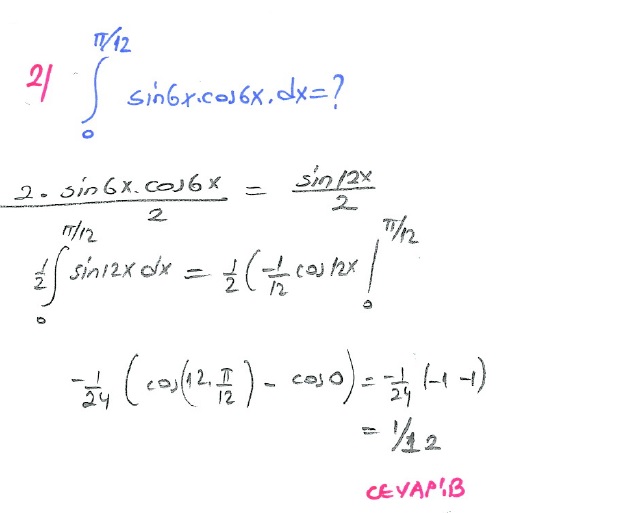 π/12
2) ∫ sin6x.cos6x.dx=?
0
2. sin6x.cos6x / 2 = sin12x / 2
π/12 π/12
1/2 ∫ sin12x dx = 1/2 (-1/12 cos12x |
0 0
-1/24 (cos(12.π/12) - cos0) = -1/24 (-1 -1)
= 1/12
CEVAP:B